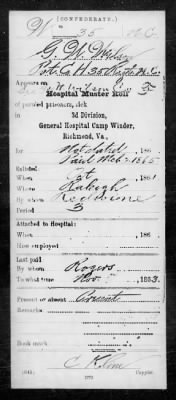 (CONFEDERATE.)
W 35 N.C.
G. W. Wilson
Appears on
Hospital Muster Roll
of paroled prisoners, sick
3d Division,
General Hospital Camp Winder,
Richmond, Va.,
for Not dated, 186
Paid Mch 7, 1865
Enlisted:
When Oct 186
Where Raleigh
By whom
Period 3
Attached to Hospital:
When , 186
How employed
Last paid
By whom Rogers
To what time Nov , 1863
Present or absent Present
Remarks:
Book mark:
(642) Copyist.